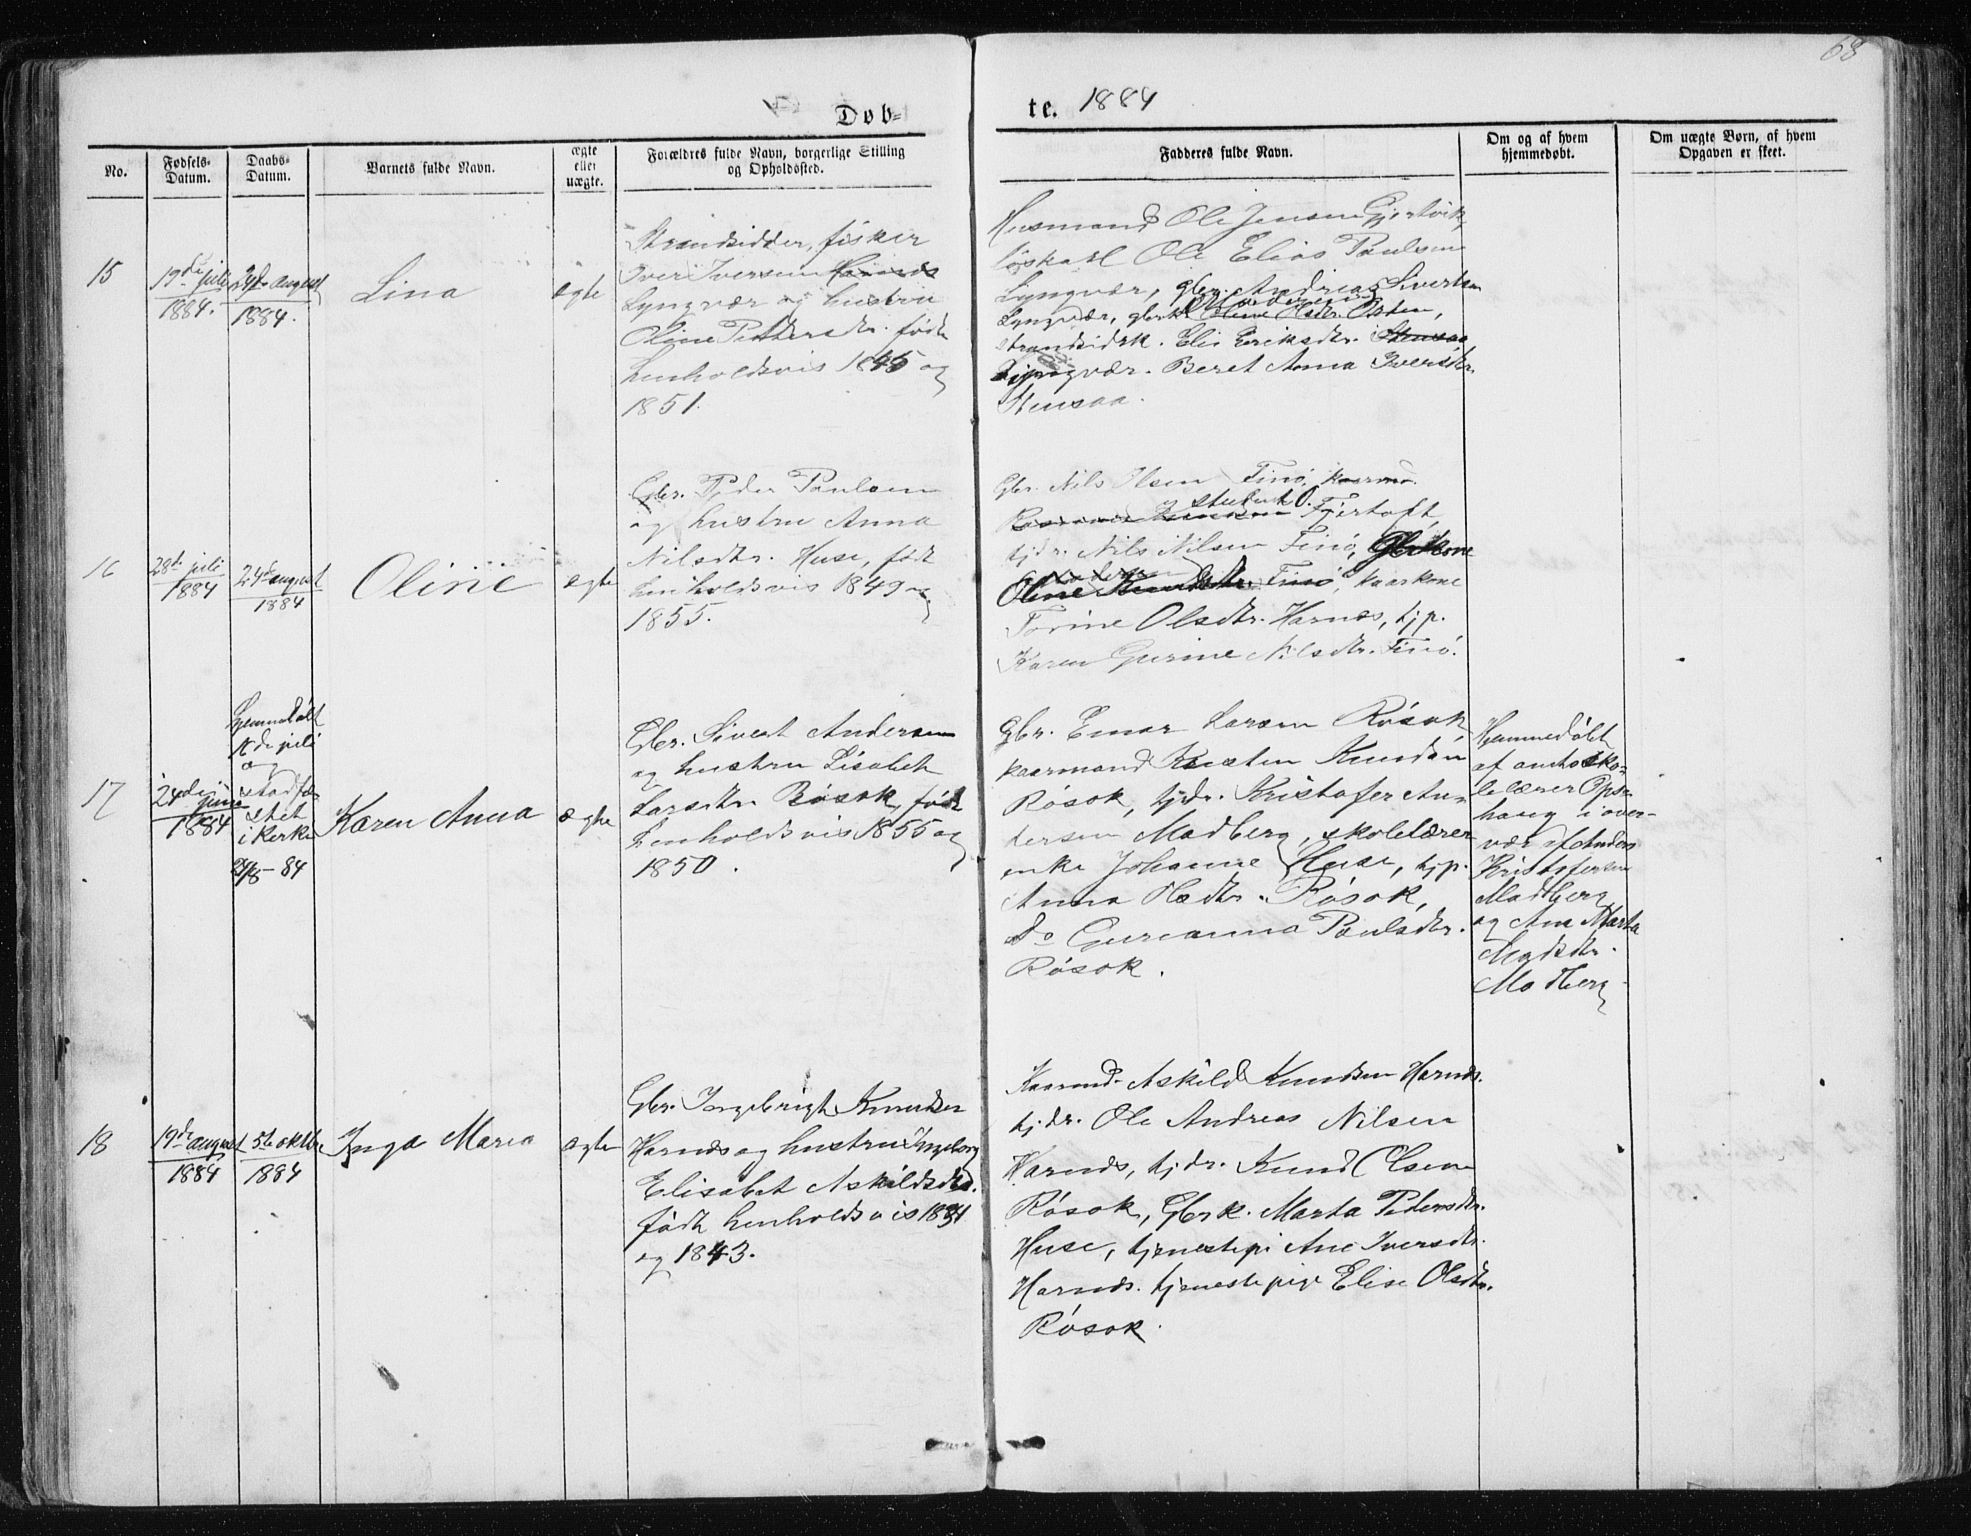 68
Døb-
te. 1884
No.
Fødsels-
Datum.
Daabs-
Datum.
Barnets fulde Navn.
ægte
eller
uægte.
Forældres fulde Navn, borgerlige Stilling
og Opholdssted.
Fadderes fulde Navn.
Om og af hvem
hjemmedøbt.
Om uægte Børn, af hvem
Opgaven er skeet.
15
19de juli
1884.
24de august
1884.
Lina
ægte
Strandsidder, fisker
Iver Iversen
Lyngvær og hustru
Oline Pedersdtr. født
henholdsvis 1845 og
1851.
Husmand Ole Jensen Gjertvik,
løskarl Ole Elias Paulsen
Lyngvær, gbr. Andreas Sivertsen
Lyngvær, gbrk. Oline Olsdtr.
strandsidrk. Elis Eriksdtr. Stensaa
Lyngvær. Beret Anna Iversdtr.
Stensaa.
16
28de juli
1884
24de august
1884
Oline
ægte
Gbr. Peder Paulsen
og hustru Anna
Nilsdtr. Huse, født
henholdsvis 1849 og
1855.
Gbr. Nils Olsen Finø, kaarmd.
student O.
Fjørtoft,
tjdr. Nils Nilsen Finø, Gbrkone
Oline Knudsdtr. Finø, kaarkone
Torine Olsdtr. Harnæs, tjp.
Karen Gurine Nilsdtr. Finø.
17
24de juni
1884
Hjemmedøbt
juli
og
stadfæ-
stet
i kerke
24/8-84
Karen Anna
ægte
Gbr. Sivert Andersen
og hustru Lisabet
Larsdtr. Røsok, født
henholdsvis 1855 og
1850.
Gbr. Einar Larsen Røsok,
kaarmand Knudsen
Røsok, tjdr. Kristofer An-
dersen Madberg, skolelærer
enke Johanne Huse, tjp.
Anna Olsdtr. Røsok,
do Gurianna Paulsdtr.
Røsok.
Hjemmedøbt
af amtssko-
lelærer Ops-
haug i over-
vær af Anders
Kristofersen
Madberg
og Ane Marta
Madsdtr.
Madberg
18
19de august
1884
5te oktbr.
1884
Inga Maria
ægte
Gbr. Ingebrigt Knudsen
Harnæs og hustru Ingeborg
Elisabet Askildsdtr.
født henholdsvis 1831
og 1843.
Kaarmd. Askild Knudsen Harnæs.
tjdr. Ole Andreas Nilsen
Harnæs, tjdr. Knud Olsen
Røsok, Gbrk. Marta Pedersdtr.
Huse, tjenestepi Ane Iversdtr.
Harnæs. tjenestepige Elise Olsdtr.
Røsok.